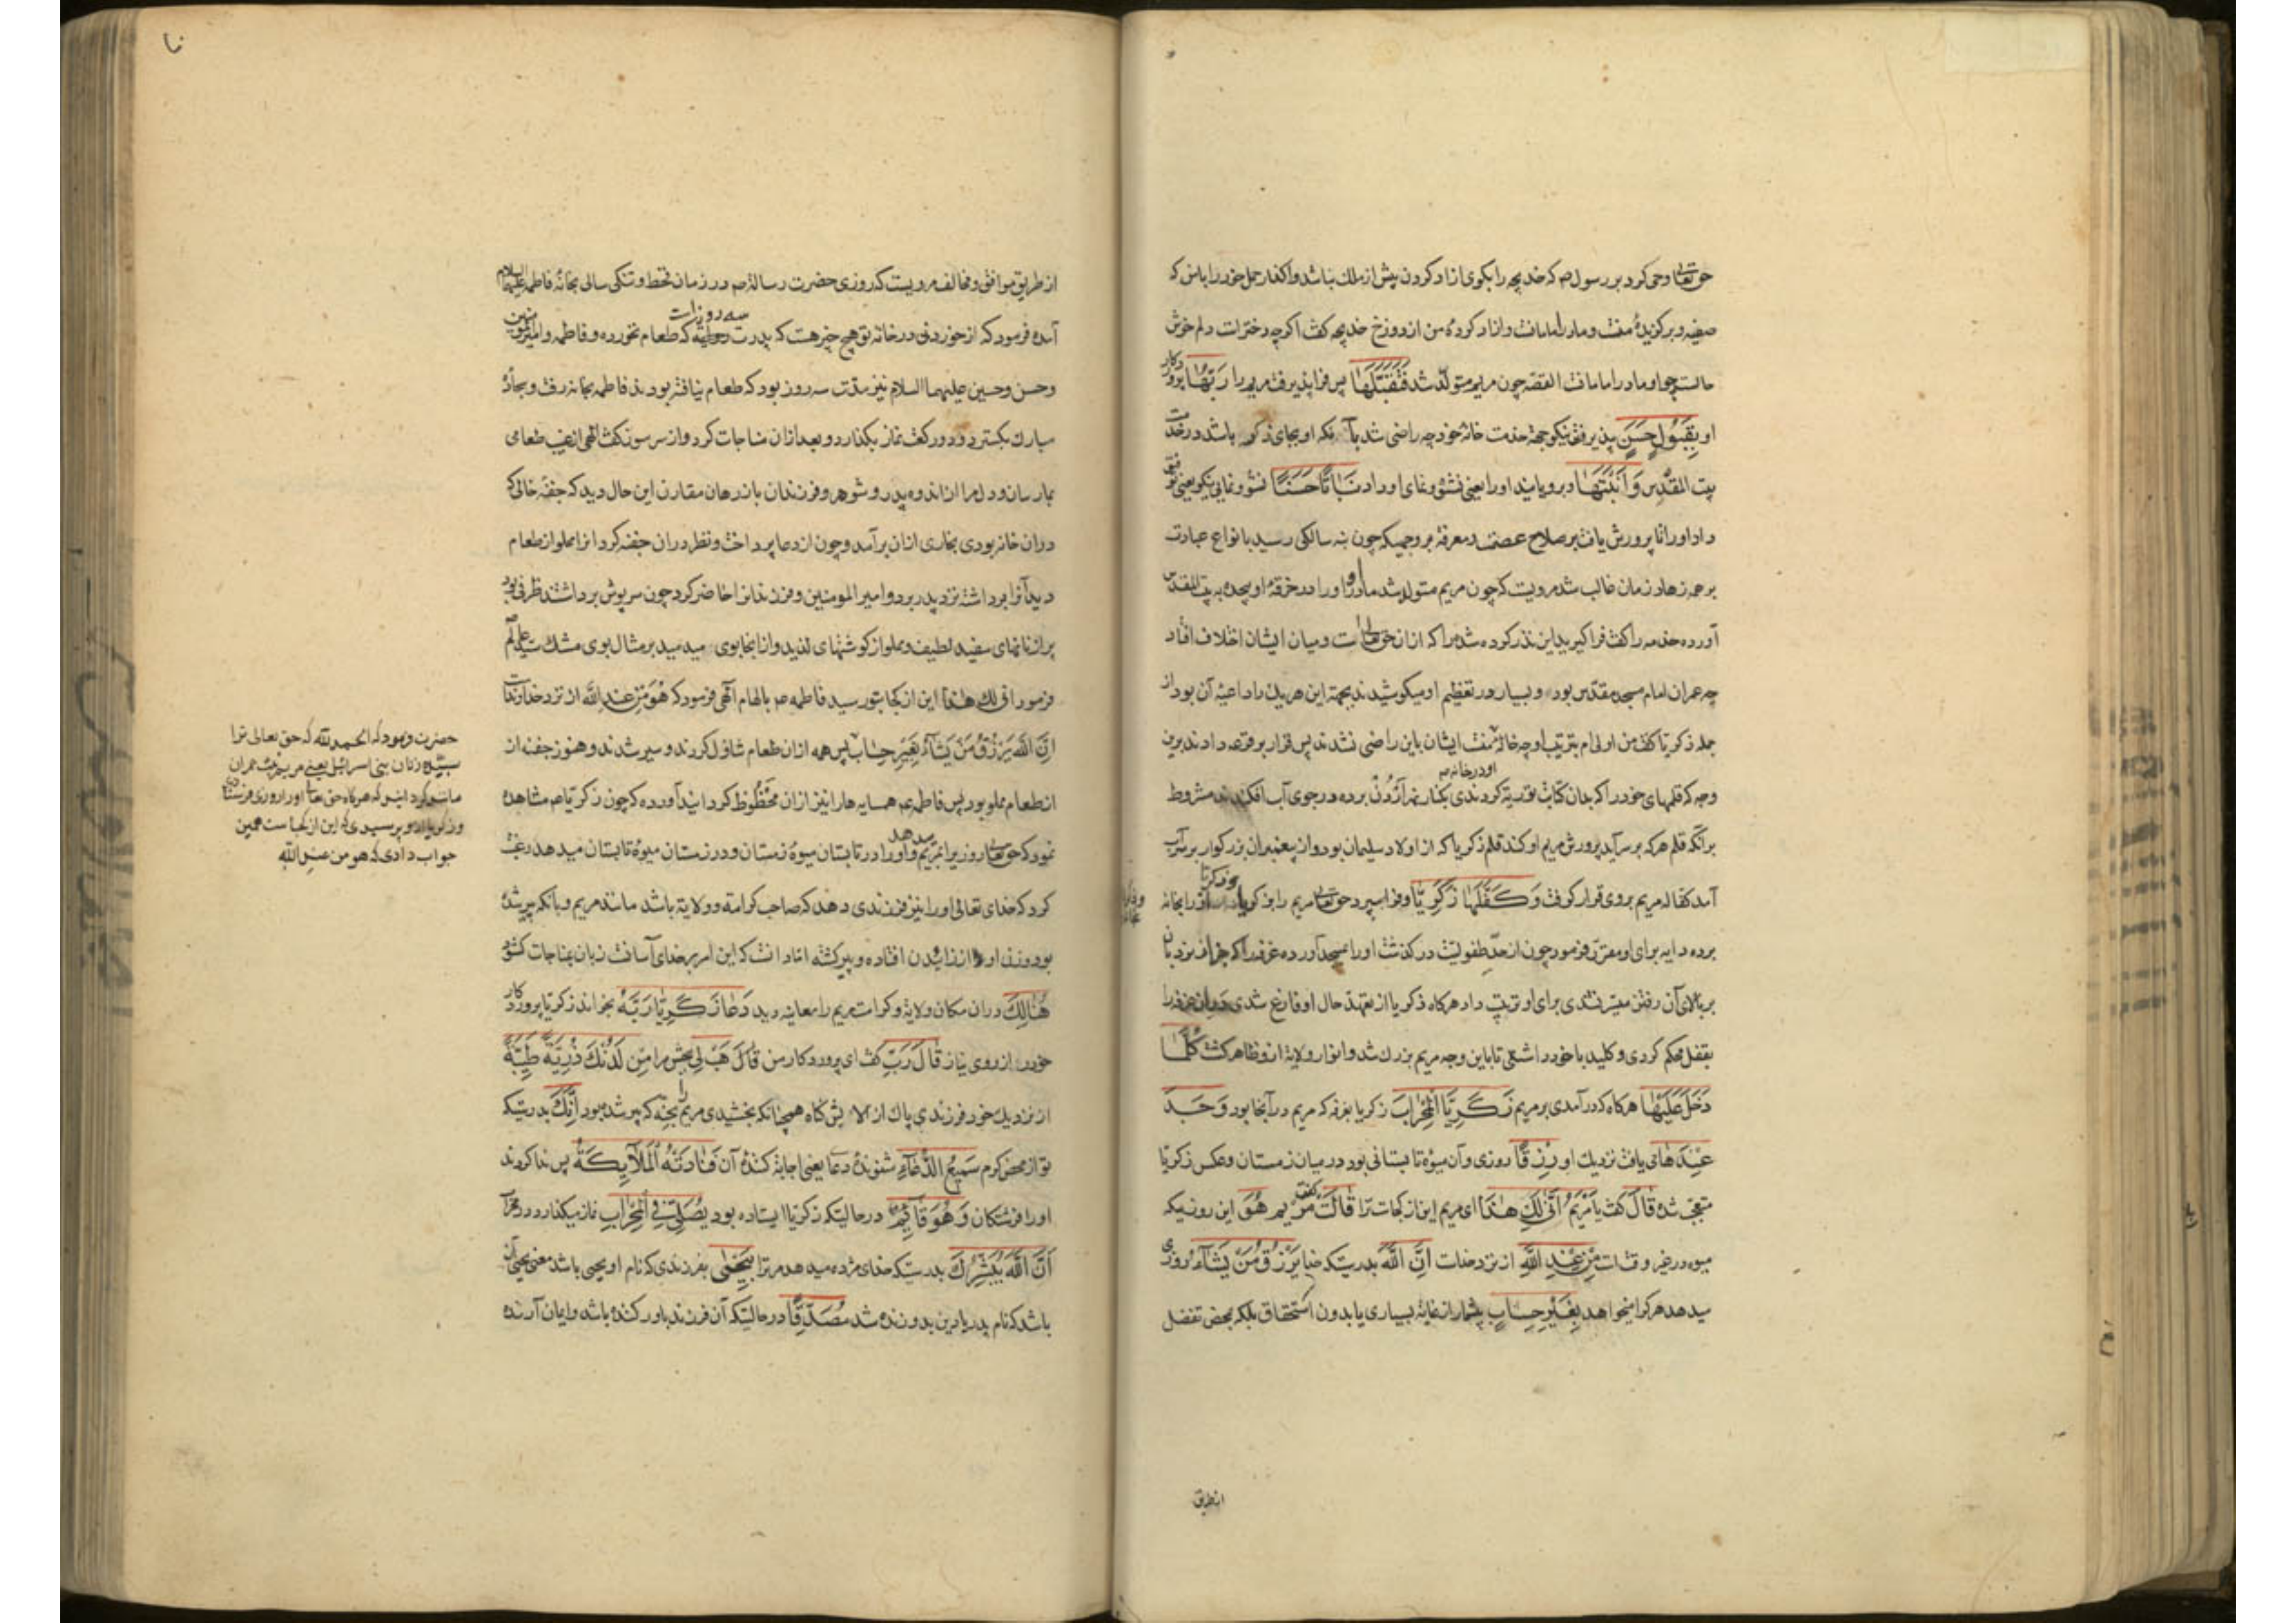 حق تعالی وحی کرد بر رسول ص که خدیجه را بکوی ازاد کردن پیش از ملک نباشد و
صفیه و برکزیدهٔ منست و مادر امامانست و ازاد کردهٔ من از دوزخ خدیجه کفت اکرچه دخترات دلم خوش
حالست چو او مادر امامانست القصه چون مریم متولد شد فَتَقَبَّلَهَا پس فرا پذیرفت مریم را رَبُّهَا پروردکار
او بِقَبُولٍ حَسَنٍ پذیرفتن نیکو جهة خدمت خانهٔ خود چه راضی شد بآنکه او بجای ذکر باشد در خدمت
بیت المقدس وَاَنْبَتَهَا و برویانید اورا یعنی نشو و نمای او داد نَبَاتًا حَسَنًا نشو و نمایی نیکو یعنی توفیق
داد اورا تا پرورش یافت بر صلاح عصمت و معرفة بر وجهیکه چون بنه سالکی رسید بانواع عبادت
بر همه زهاد زمان غالب شد مرویست که چون مریم متولد شد مادر او اورا در خرقهٔ او پیچده به بیت المقدس
آورده خدمه را کفت فرا کیرید این نذر کرده شده را که از ان حق تعالی است و میان ایشان اختلاف افتاد
چه عمران امام مسجد مقدس بود و بسیار در تعظیم او میکوشیدند بجهة این هر یک را داعیهٔ آن بود از
جمله زکریا کفت من اولی ام بتربیت او چه خالهٔ منست ایشان باین راضی نشدند پس قرار بر قرعه دادند برین
او در خانه
وجه که قلمهای خود را که بدان کتابت توریة کردندی بکنار نهر اُرْدُن برده در جوی آب افکندند مشروط
برآنکه قلم هر که بر سر آید پرورش مریم او کند قلم زکریا که از اولاد سلیمان بود و از پیغمبران بزرکوار بر سر آب
آمد کفالهٔ مریم بروی قرار کرفت وَكَفَّلَهَا زَكَرِيَّا و فرا سپرد حق تعالی مریم را بزکریا اورا بخانه
برده دایه برای او مقرر فرمود چون از حدّ طفولیت در کذشت اورا بمسجد آورده غرفهٔ را که جز از نردبان
بر بالای آن رفتن میسر نشدی برای او ترتیب داد هرکاه زکریا از تعهد حال او فارغ شدی در آن غرفه را
بقفل محکم کردی و کلید با خود داشتی تا باین وجه مریم بزرک شد و انوار ولایة ازو ظاهر کشت كُلَّمَا
دَخَلَ عَلَيْهَا هرکاه که درآمدی بر مریم زَكَرِيَّا الْمِحْرَابَ زکریا بغرفه که مریم در آنجا بود وَجَدَ
عِنْدَهَا می یافت نزدیک او رِزْقًا روزی و آن میوهٔ تابستانی بود در میان زمستان و عکس زکریا
متعجب شده قَالَ کفت يَا مَرْيَمُ اَنّٰى لَكِ هٰذَا ای مریم این از کجاست ترا قَالَتْ کفت مریم هُوَ این روزیکه
میوه در غیر وقتست مِنْ عِنْدِ اللّٰهِ از نزد خداست اِنَّ اللّٰهَ بدرستیکه خدا يَرْزُقُ مَنْ يَشَآءُ روزی
میدهد هرکرا میخواهد بِغَيْرِ حِسَابٍ بشمار از غایة بسیاری یا بدون استحقاق بلکه بمحض تفضل
از طریق
از طریق موافق و مخالف مرویست که روزی حضرت رسالة ص در زمان قحط و تنکی سالی بخانهٔ فاطمه علیها السلام
سه روز است
آمده فرمود که از خوردنی در خانه تو هیچ چیز هست که پدرت که طعام نخورده و فاطمه و امیر المومنین
وحسن وحسین علیهما السلام نیز مدت سه روز بود که طعام نیافته بودند فاطمه بخانه رفت و سجادهٔ
مبارک بکسترد و دو رکعت نماز بکذارد و بعد ازان مناجات کرد و از سر سوز کفت الهی از غیب طعامی
بما رسان و دل مرا از اندوه پدر و شوهر و فرزندان باز رهان مقارن این حال دید که جفنهٔ خالی که
دران خانه بودی بخاری ازان برآمد و چون از دعا پرداخت و نظر دران جفنه کرد انرا مملو از طعام
دید آنرا برداشته نزد پدر برد و امیر المومنین و فرزندانرا حاضر کرد چون سرپوش برداشتند ظرفی بود
پر از نانهای سفید لطیف و مملو از کوشتهای لذید و از انجا بوی میدمید بر مثال بوی مشک سید عالم
فرمود انی لک هذا این از کجا بتو رسید فاطمه ص بالهام الهی فرمود که هُوَ مِنْ عِنْدِ اللّٰه از نزد خداوند است
اِنَّ اللّٰهَ يَرْزُقُ مَنْ يَشَآءُ بِغَيْرِ حِسَاب پس همه ازان طعام تناول کردند و سیر شدند و هنوز جفنه از
ان طعام مملو بود پس فاطمه ع همسایه ها را نیز ازان محظوظ کردانید آورده که چون زکریا ع مشاهده
میدهد
نمود که حق تعالی روزی را بمریم و اورا در تابستان میوهٔ زمستان و در زمستان میوهٔ تابستان میدهد رغبت
کرد که خدای تعالی اورا نیز فرزندی دهد که صاحب کرامة و ولایة باشد مانند مریم و بآنکه پیر شده
بود وزن او از زاییدن افتاده و پیر کشته اما دانست که این امر بر خدای آسانست زبان بمناجات کشود
هُنَالِكَ دران مکان ولایة و کرامت مریم را معاینه دید دَعَا زَكَرِيَّا رَبَّهُ بخواند زکریا پروردکار
خود را از روی نیاز قَالَ رَبِّ کفت ای پروردکار من قَالَ هَبْ لِي بخش مرا مِنْ لَدُنْكَ ذُرِّيَّةً طَيِّبَةً
از نزدیک خود فرزندی پاک از الایش کناه همچنانکه بخشیدی مریم را بحنه که پیر شده بود اِنَّكَ بدرستیکه
تو از محض کرم سَمِيعُ الدُّعَآءِ شنوندهٔ دعا یعنی اجابة کنندهٔ آن فَنَادَتْهُ الْمَلَآئِكَةُ پس ندا کردند
اورا فرشتکان وَهُوَ قَآئِمٌ در حالیتکه زکریا ایستاده بود يُصَلِّي فِي الْمِحْرَابِ نماز میکذارد در محراب
اَنَّ اللّٰهَ يُبَشِّرُكَ بدرستیکه خدای مژده میدهد مر ترا بِيَحْيٰى بفرزندی که نام او یحیی باشد معنی یحیی آن
باشد که نام پدر یا دین بدو زنده شد مُصَدِّقًا در حالیتکه آن فرزند باور کننده باشد و ایمان آرنده
حضرت فرمود که الحمد لله که حق تعالی ترا
سیدهٔ زنان بنی اسرائیل یعنی مریم بنت عمران
مانند کردانید که هرکاه حق تعالی اورا روزی فرستادی
و زکریا ازو پرسیدی که این از کجاست همین
جواب دادی که هو من عند الله